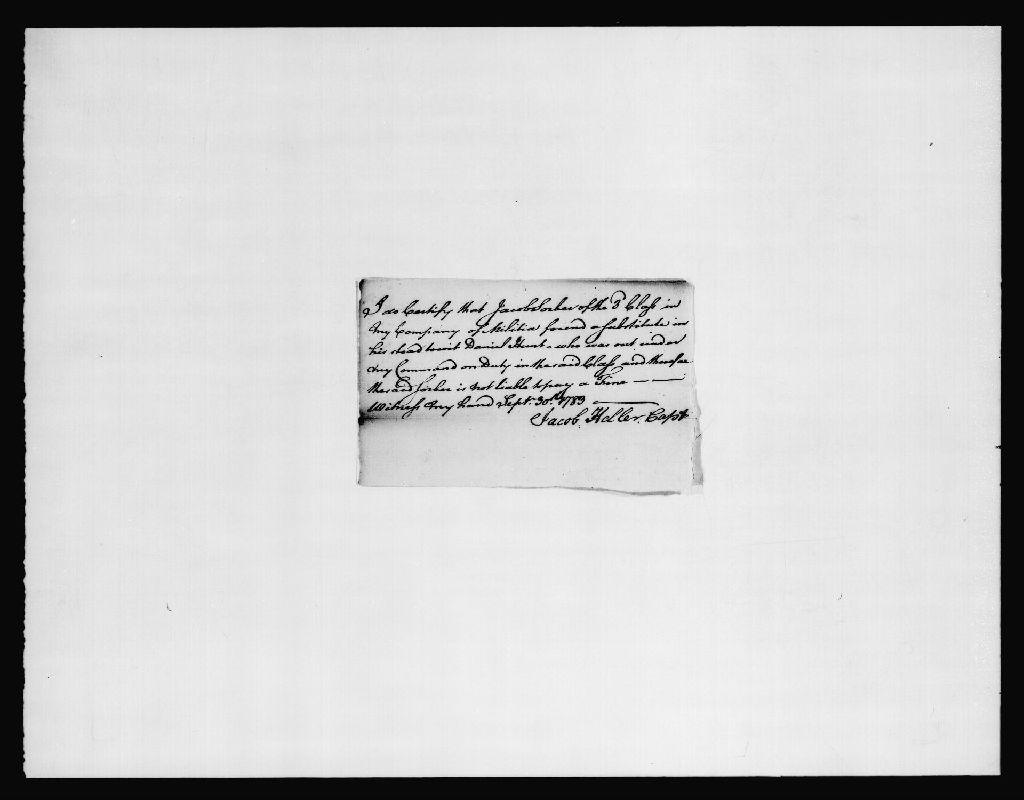 I do Certify that Jacob Locher of the 3d Class in
My Company of Militia found a Substitute in
his stead to wit Daniel Hunt, who was out under
my Command on Duty in the said Class and therefore
the said Locher is not liable to pay a Fine — —
Witness my hand Sept. 30th 1783 —
Jacob Holler. Capt